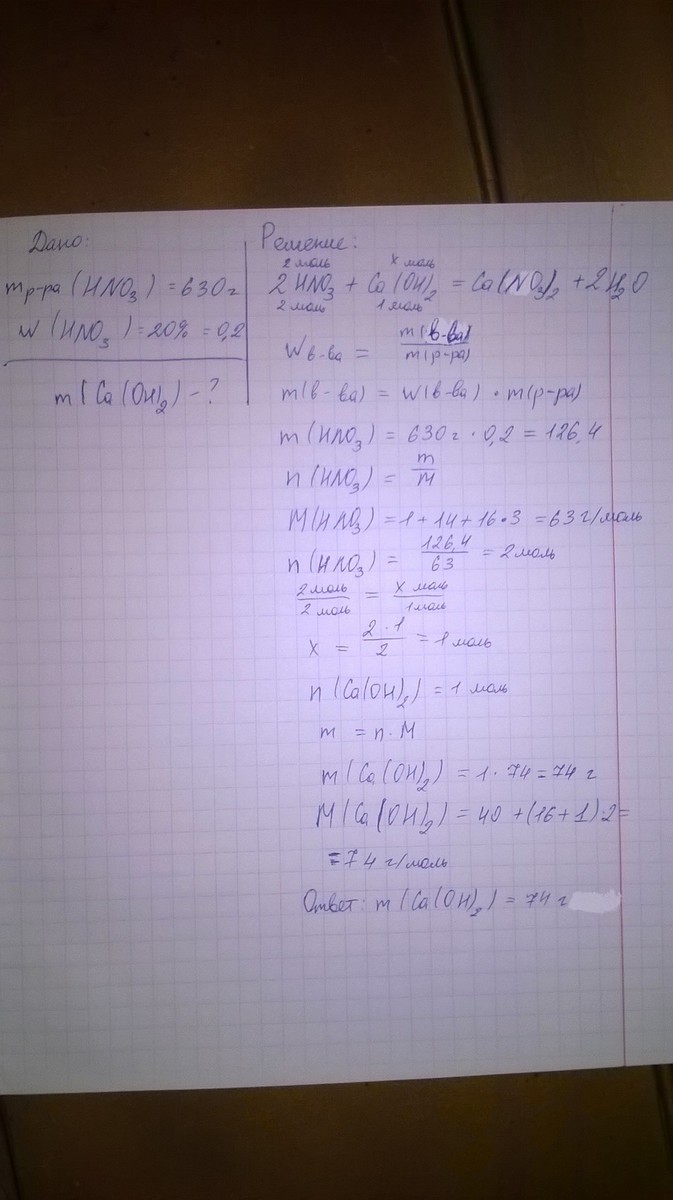 Дано:
m р-ра (HNO₃) = 630 г
W (HNO₃) = 20% = 0,2
m (Ca(OH)₂) - ?
Решение:
2 моль x моль
2HNO₃ + Ca(OH)₂ = Ca(NO₃)₂ + 2H₂O
2 моль 1 моль
W в-ва = m(в-ва) / m(р-ра)
m(в-ва) = W(в-ва) · m(р-ра)
m(HNO₃) = 630 г · 0,2 = 126,4
n(HNO₃) = m / M
M(HNO₃) = 1 + 14 + 16·3 = 63 г/моль
n(HNO₃) = 126,4 / 63 = 2 моль
2 моль / 2 моль = x моль / 1 моль
x = 2·1 / 2 = 1 моль
n(Ca(OH)₂) = 1 моль
m = n·M
m(Ca(OH)₂) = 1·74 = 74 г
M(Ca(OH)₂) = 40 + (16+1)·2 =
= 74 г/моль
Ответ: m(Ca(OH)₂) = 74 г